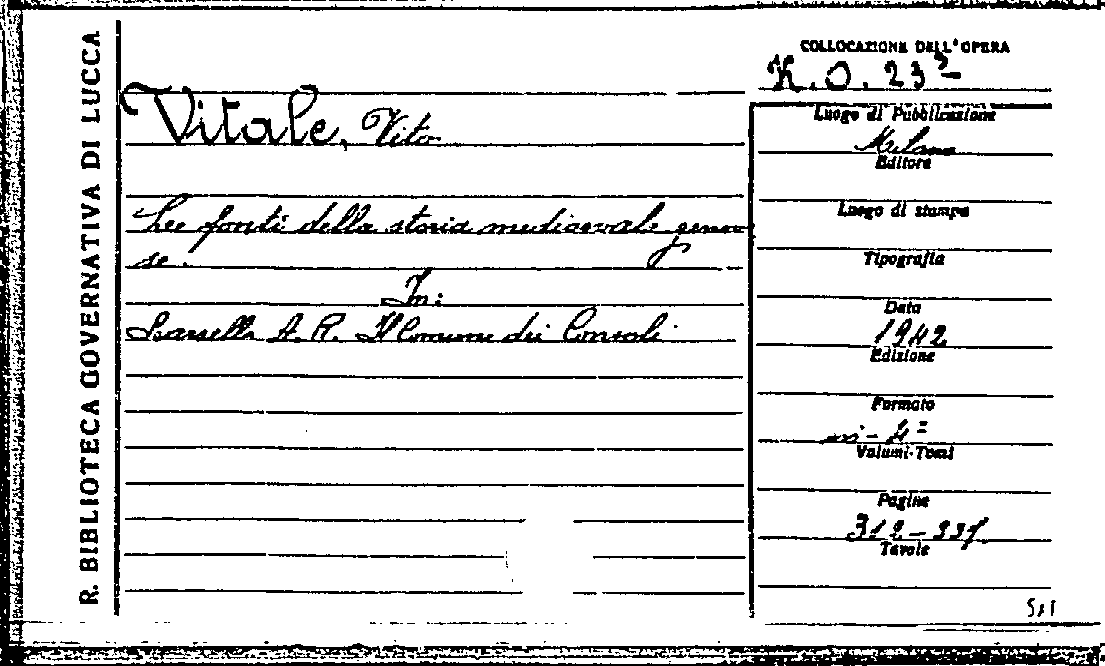 R. BIBLIOTECA GOVERNATIVA DI LUCCA
COLLOCAZIONE DELL'OPERA
K. O. 23
Vitale, Vito
Le fonti della storia medioevale genove
se.
In:
A. R. Il Comune dei Consoli
Luogo di Pubblicazione
Milano
Editore
Luogo di stampa
Tipografia
Data
1942
Edizione
Formato
in-4º
Volumi-Tomi
Pagine
312-331.
Tavole